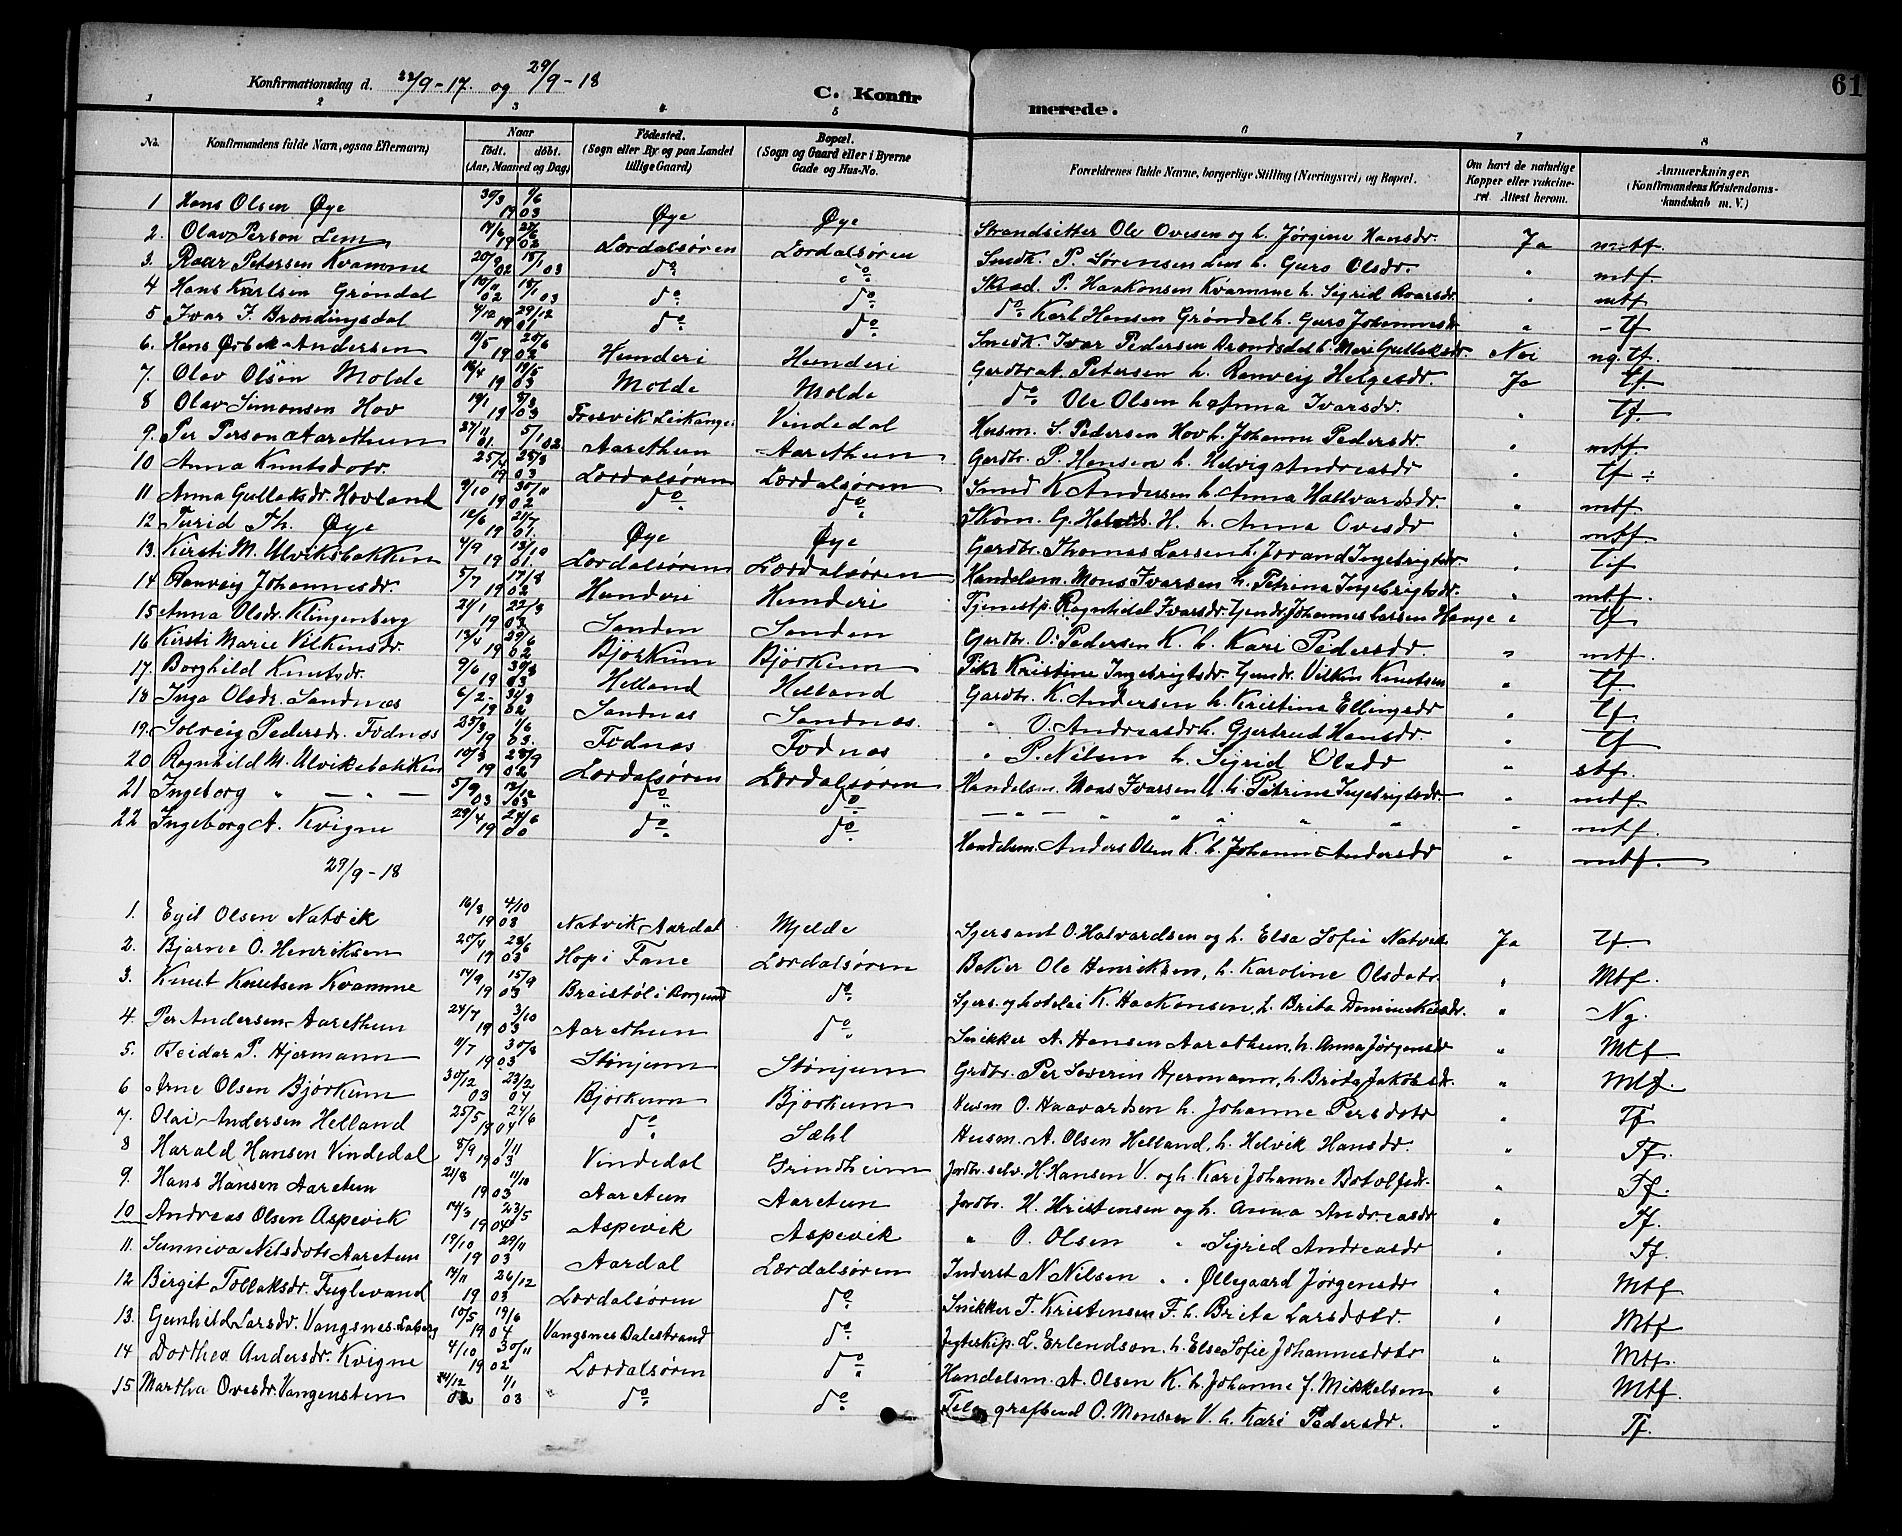 61
Konfirmationsdag d. 22/9-17. og 29/9-18
C. Konfirmerede.
1 2 3 4 5 6 7 8
No. Konfirmandens fulde Navn, ogsaa Efternavn) Naar født. døbt. (Aar, Maaned og Dag) Fødested. (Sogn eller By og paa Landet tillige Gaard) Bopæl. (Sogn og Gaard eller i Byerne Gade og Hus-No. Forældrenes fulde Navne, borgerlige Stilling (Næringsvei) og Bopæl. Om havt de naturlige Kopper eller vakcineret. Attest herom. Anmærkninger. (Konfirmandens Kristendomskundskab m. V.)
1 Hans Olsen Øye 30/3 1/6 1903 Øye Øye Strandsitter Ole Ovesen og h. Jørgine Hansdr. Ja mtf.
2. Olav Person Lem 1902 Lærdalsøren Lærdalsøren Smedk. P. Sørensen Lem h. Guro Olsdr. " mtf.
3. Roar Petersen Kvamme 20/9 02 18/1 03 do do Skræd. P. Haakonsen Kvamme h. Sigrid Roarsdr. " mtf
4 Hans Karlsen Grøndal 02 18/1 03 do do do Karl Hansen Grøndal h. Guro Johannesdr " tf
5 Ivar I. Brændingsdal 4/12 29/12 1901 do do Smedk. Ivar Pedersen h. Mari Gullaksdr. Nei ng. tf.
6. Hans Ørbek Andersen 19/5 20/6 1902 Hunderi Hunderi Gardbr. A. Petersen h. Ranveig Helgesdr. Ja tf
7. Olav Olsen Molde 16/4 19/5 1903 Molde Molde do Ole Olsen h. Anna Ivarsdr. " tf.
8 Olav Simonsen Hov 19/1 8/3 1903 Fresvik Leikanger Vindedal Husm. S. Pedersen Hov h. Johanne Pedersdr. " mtf.
9. Per Person Aarethun 27/11 01. 5/1 02 Aarethun Aarethun Gardbr. P. Hansen h. Helvig Andreasdr " tf ÷
10 Anna Knutsdotr. 25/4 25/8 1903 Lærdalsøren Lærdalsøren Smed K. Andersen h. Anna Hallvardsdr. " mtf
11 Anna Gullaksdr. Hovland 9/10 30/11 1902 do do Skom. G. H. h. Anna Ovesdr " mtf.
12 Turid Th. Øye 12/6 21/7 1901. Øye Øye Gardbr. Thomas Larsen h. Jorand Ingebrigtsdr. " tf
13. Kirsti M. Ulviksbakken 4/9 13/10 1901. Lærdalsøren Lærdalsøren Handelsm. Mons Ivarsen h. Petrina Ingebrigtsdr. " mtf.
14. Ranveig Johannesdr. 5/7 17/8 1902 Hunderi Hunderi Tjenestp. Ragnhild Ivarsdr. Gmdr. Johannes Larsen Hauge " tf
15. Anna Olsdr. Klingenberg 21/1 22/3 1903 Sanden Sanden Gardbr. O. Pedersen K. h. Kari Pedersdr. " mtf.
16 Kirsti Marie Vilkinsdr. 13/4 29/6 1902 Bjørkum Bjørkum Pike Kristine Ingebrigtsdr. Gmdr. Vilkin Knutsen " tf.
17. Borghild Knutsdr. 9/6 30/8 1903 Helland Helland Gardbr. K. Andersen h. Kristina Ellingsdr " tf
18 Inga Olsdr. Sandnæs 6/2 31/3 1902 Sandnæs Sandnæs. " O. Andreasdr h. Gjertrud Hansdr. " tf
19. Solveig Pedersdr. Fodnæs 25/3 1/6 1903. Fodnæs Fodnæs " P. Nilsen h. Sigrid Olsdr " stf.
20 Ragnhild M. Ulviksbakken 10/3 28/9 1902 Lærdalsøren Lærdalsøren Handelsm. Mons Ivarsen U. h. Petrine Ingebrigtsdr. " mtf
21 Ingeborg " — " — 5/9 03 13/12 03 do do — " — " " " " " " mtf.
22 Ingeborg A. Kvigne 29/4 24/6 1900 do do Handelsm. Anders Olsen K. h. Johanne Andersdr " mtf.
29/9-18
1. Egil Olsen Natvik 16/8 4/10 1903 Natvik, Aardal Mjelde Sjersant O. Halvardsen og h. Elsa Sofie Natvik Ja tf
2. Bjarne O. Henriksen 20/4 28/6 1903 Hop i Fane Lærdalsøren Baker Ole Henriksen, h. Karoline Olsdotr. " Mtf.
3. Knut Knutsen Kvamme 14/9 15/9 1903 Breistøl i Borgund do Sjers. og hoteleier K. Haakonsen, h. Brita Dominikusdr. " Ng.
4. Per Andersen Aarethun 24/7 3/10 1903 Aarethun do Snikker A. Hansen Aarethun, h. Anna Jørgensdr " Mtf
5. Reidar P. Hjermann 11/7 30/8 1903 Stønjum Stønjum Grdbr. Per Severin Hjermann, h. Brita Jakobsdr. " Mtf.
6 Arne Olsen Bjørkum 30/12 03 23/2 04 Bjørkum Bjørkum Husm O. Haavardsen h. Johanne Persdotr " Tf
7. Olai Andersen Helland 25/5 24/6 1904 do Sæhl Husm. A. Olsen Helland, h. Helvik Hansdr. " Tf.
8 Harald Hansen Vindedal 8/9 1/11 1903 Vindedal Grindheim Jordbr. selv. H. Hansen V. og h. Kari Johanne Botolfsdr. " Tf.
9. Hans Hansen Aaretun 21/8 11/10 1903 Aaretun Aaretun Jordbr. H. Kristensen og h. Anna Andreasdr " Tf.
10 Andreas Olsen Aspevik 14/3 23/5 1904 Aspevik Aspevik " O. Olsen " Sigrid Andreasdr " Tf.
11. Sunniva Nilsdotr Aaretun 19/10 29/11 1903 Aardal Lærdalsøren Inderst N Nilsen " " Øllegaard Jørgensdr " Mtf
12. Birgit Tollaksdr. Fuglevand 14/11 26/12 1903 Lærdalsøren do Snikker T. Kristensen F. h. Brita Larsdotr. " Mtf
13. Gunhild Larsdr. Vangsnes 10/5 19/6 1904 Vangsnes Balestrand do Jegteskip. L. Erlendson, h. Else Sofie Johannesdotr " Mtf.
14 Dorthea Andersdr. Kvigne 4/10 30/11 1902 Lærdalsøren do Handelsm. A. Olsen K. h. Johanne J. Mikkelsen " Mtf.
15 Martha Ovesdr. Vangensten 24/12 02 1/1 03 " do do Telegrafbud O. Monsen V. h. Kari Pedersdr. " Tf.